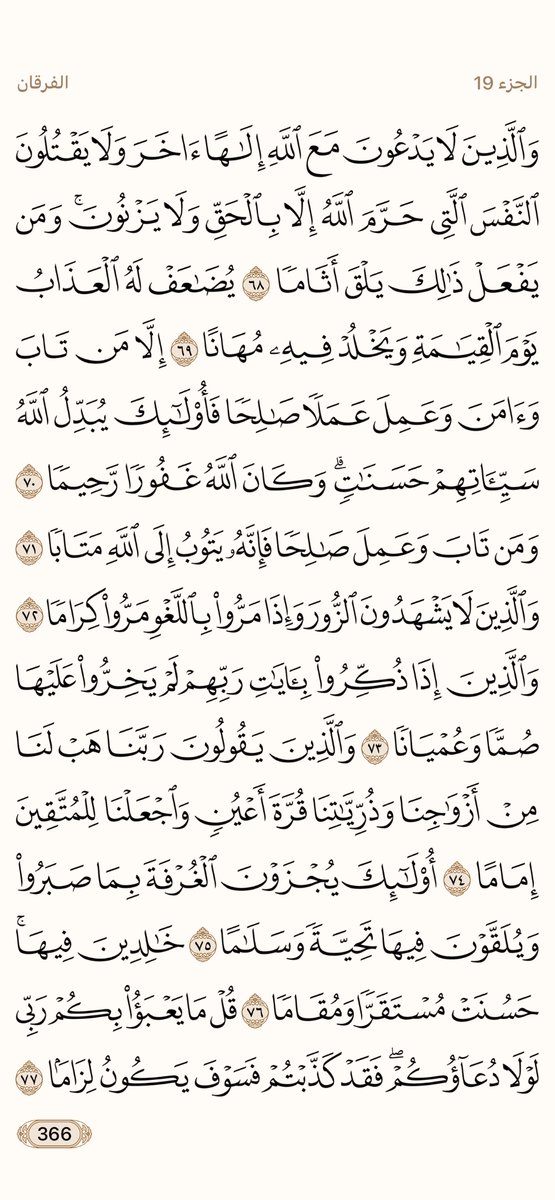 الجزء 19
الفرقان
وَٱلَّذِينَ لَا يَدْعُونَ مَعَ ٱللَّهِ إِلَـٰهًا ءَاخَرَ وَلَا يَقْتُلُونَ
ٱلنَّفْسَ ٱلَّتِى حَرَّمَ ٱللَّهُ إِلَّا بِٱلْحَقِّ وَلَا يَزْنُونَ ۚ وَمَن
يَفْعَلْ ذَٰلِكَ يَلْقَ أَثَامًا ٦٨ يُضَـٰعَفْ لَهُ ٱلْعَذَابُ
يَوْمَ ٱلْقِيَـٰمَةِ وَيَخْلُدْ فِيهِۦ مُهَانًا ٦٩ إِلَّا مَن تَابَ
وَءَامَنَ وَعَمِلَ عَمَلًا صَـٰلِحًا فَأُو۟لَـٰٓئِكَ يُبَدِّلُ ٱللَّهُ
سَيِّـَٔاتِهِمْ حَسَنَـٰتٍ ۗ وَكَانَ ٱللَّهُ غَفُورًا رَّحِيمًا ٧٠
وَمَن تَابَ وَعَمِلَ صَـٰلِحًا فَإِنَّهُۥ يَتُوبُ إِلَى ٱللَّهِ مَتَابًا ٧١
وَٱلَّذِينَ لَا يَشْهَدُونَ ٱلزُّورَ وَإِذَا مَرُّوا۟ بِٱللَّغْوِ مَرُّوا۟ كِرَامًا ٧٢
وَٱلَّذِينَ إِذَا ذُكِّرُوا۟ بِـَٔايَـٰتِ رَبِّهِمْ لَمْ يَخِرُّوا۟ عَلَيْهَا
صُمًّا وَعُمْيَانًا ٧٣ وَٱلَّذِينَ يَقُولُونَ رَبَّنَا هَبْ لَنَا
مِنْ أَزْوَٰجِنَا وَذُرِّيَّـٰتِنَا قُرَّةَ أَعْيُنٍ وَٱجْعَلْنَا لِلْمُتَّقِينَ
إِمَامًا ٧٤ أُو۟لَـٰٓئِكَ يُجْزَوْنَ ٱلْغُرْفَةَ بِمَا صَبَرُوا۟
وَيُلَقَّوْنَ فِيهَا تَحِيَّةً وَسَلَـٰمًا ٧٥ خَـٰلِدِينَ فِيهَا ۚ
حَسُنَتْ مُسْتَقَرًّا وَمُقَامًا ٧٦ قُلْ مَا يَعْبَؤُا۟ بِكُمْ رَبِّى
لَوْلَا دُعَآؤُكُمْ ۖ فَقَدْ كَذَّبْتُمْ فَسَوْفَ يَكُونُ لِزَامًۢا ٧٧
366